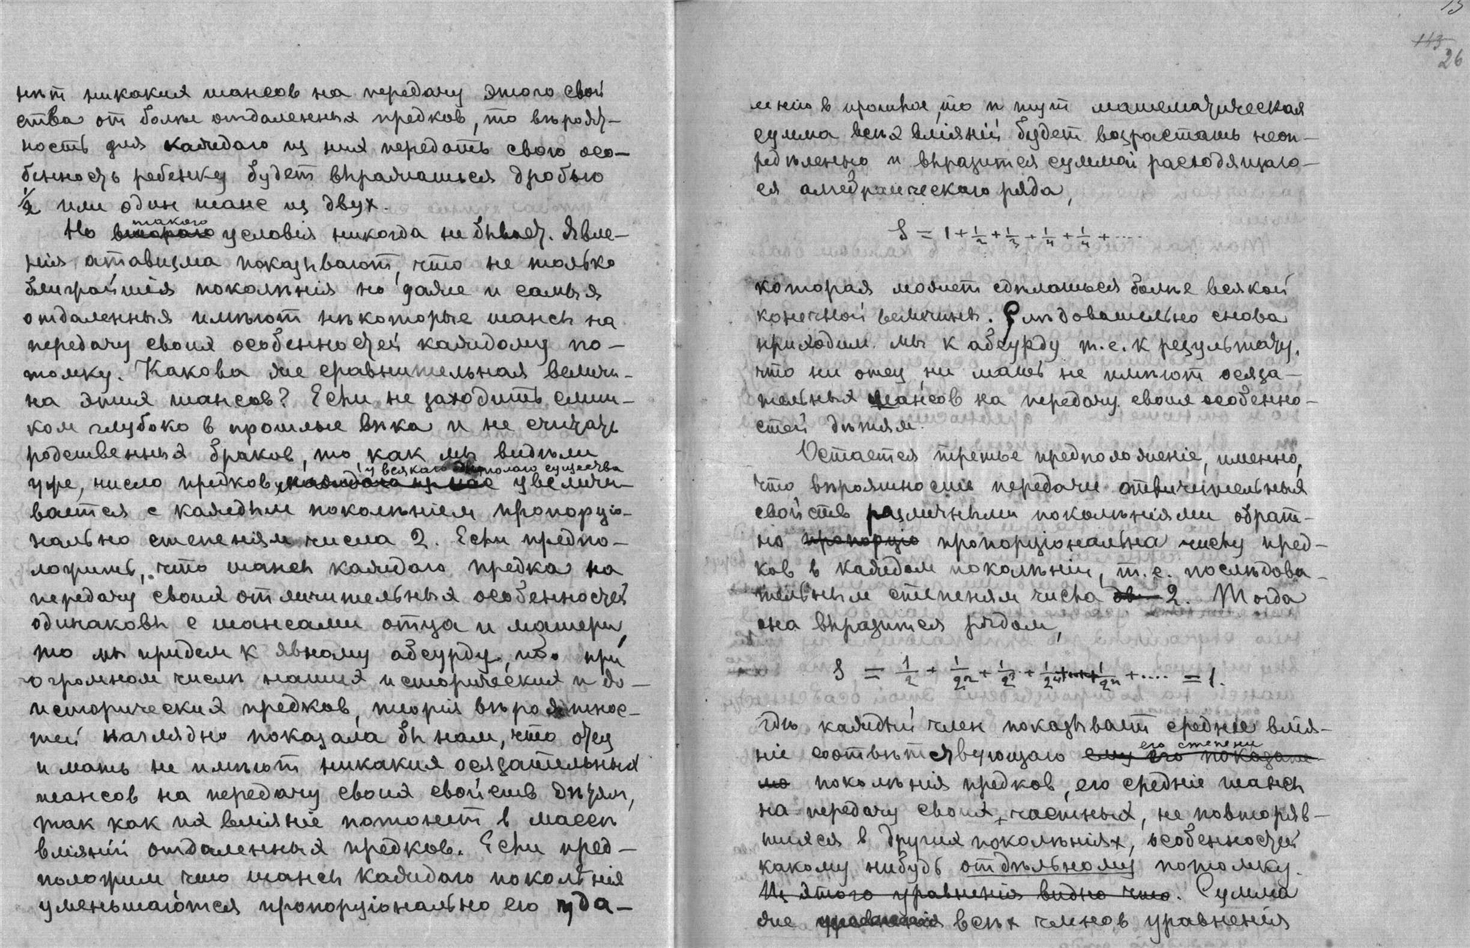 нѣт никаких шансов на передачу этого свой
ства от болѣе отдаленных предков, то вѣроят-
ность для каждаго из них передать свою осо-
бенность ребенку будет выражаться дробью
½ или один шанс из двух.
Но такого условія никогда не бывает. Явле-
нія атавизма показывают, что не только
ближайшія поколѣнія но даже и самыя
отдаленныя имѣют нѣкоторые шансы на
передачу своих особенностей каждому по-
томку. Какова же сравнительная величи-
на этих шансов? Если не заходить слиш-
ком глубоко в прошлые вѣка и не считать
родственных браков, то как мы видѣли
у всякаго живого существа
уже, число предков каждаго из нас увеличи-
вается с каждым поколѣніем пропорціо-
нально степеням числа 2. Если предпо-
ложить, что шансы каждаго предка на
передачу своих отличительных особенностей
одинаковы с шансами отца и матери,
то мы придем к явному абсурду, ибо при
огромном числѣ наших исторических и до-
исторических предков, теорія вѣроятнос-
тей наглядно показала бы нам, что отец
и мать не имѣют никаких осязательных
шансов на передачу своих свойств дѣтям,
так как их вліяніе потонет в массѣ
вліяній отдаленных предков. Если пред-
положим, что шансы каждаго поколѣнія
уменьшаются пропорціонально его уда-
13
113
26
ленію в прошлое, то и тут математическая
сумма всѣх вліяній будет возрастать неоп-
редѣленно и выразится суммой расходящаго-
ся алгебраическаго ряда,
S = 1 + 1/2 + 1/3 + 1/4 + 1/4 + ....
которая может сдѣлаться болѣе всякой
конечной величины. Слѣдовательно снова
приходим мы к абсурду т.е. к результату,
что ни отец ни мать не имѣют осяза-
тельных шансов на передачу своих особенно-
стей дѣтям.
Остается третье предположеніе, именно,
что вѣроятности передачи отличительных
свойств различными поколѣніями обрат-
но пропорціо пропорціональна числу пред-
ков в каждом поколѣніи, т.е. послѣдова-
тельным степеням числа 2. Тогда
она выразится рядом,
S = 1/2 + 1/2² + 1/2³ + 1/2⁴ + 1/2ⁿ + .... = 1.
Гдѣ каждый член показывает среднее влія-
его степени
ніе соотвѣтствующаго ему его показате
лю поколѣнія предков, его средніе шансы
на передачу своих, частных, не повторяв-
шихся в других поколѣніях, особенностей
какому нибудь отдѣльному потомку.
Из этого уравненія видно что. Сумма
же уравненія всѣх членов уравненія